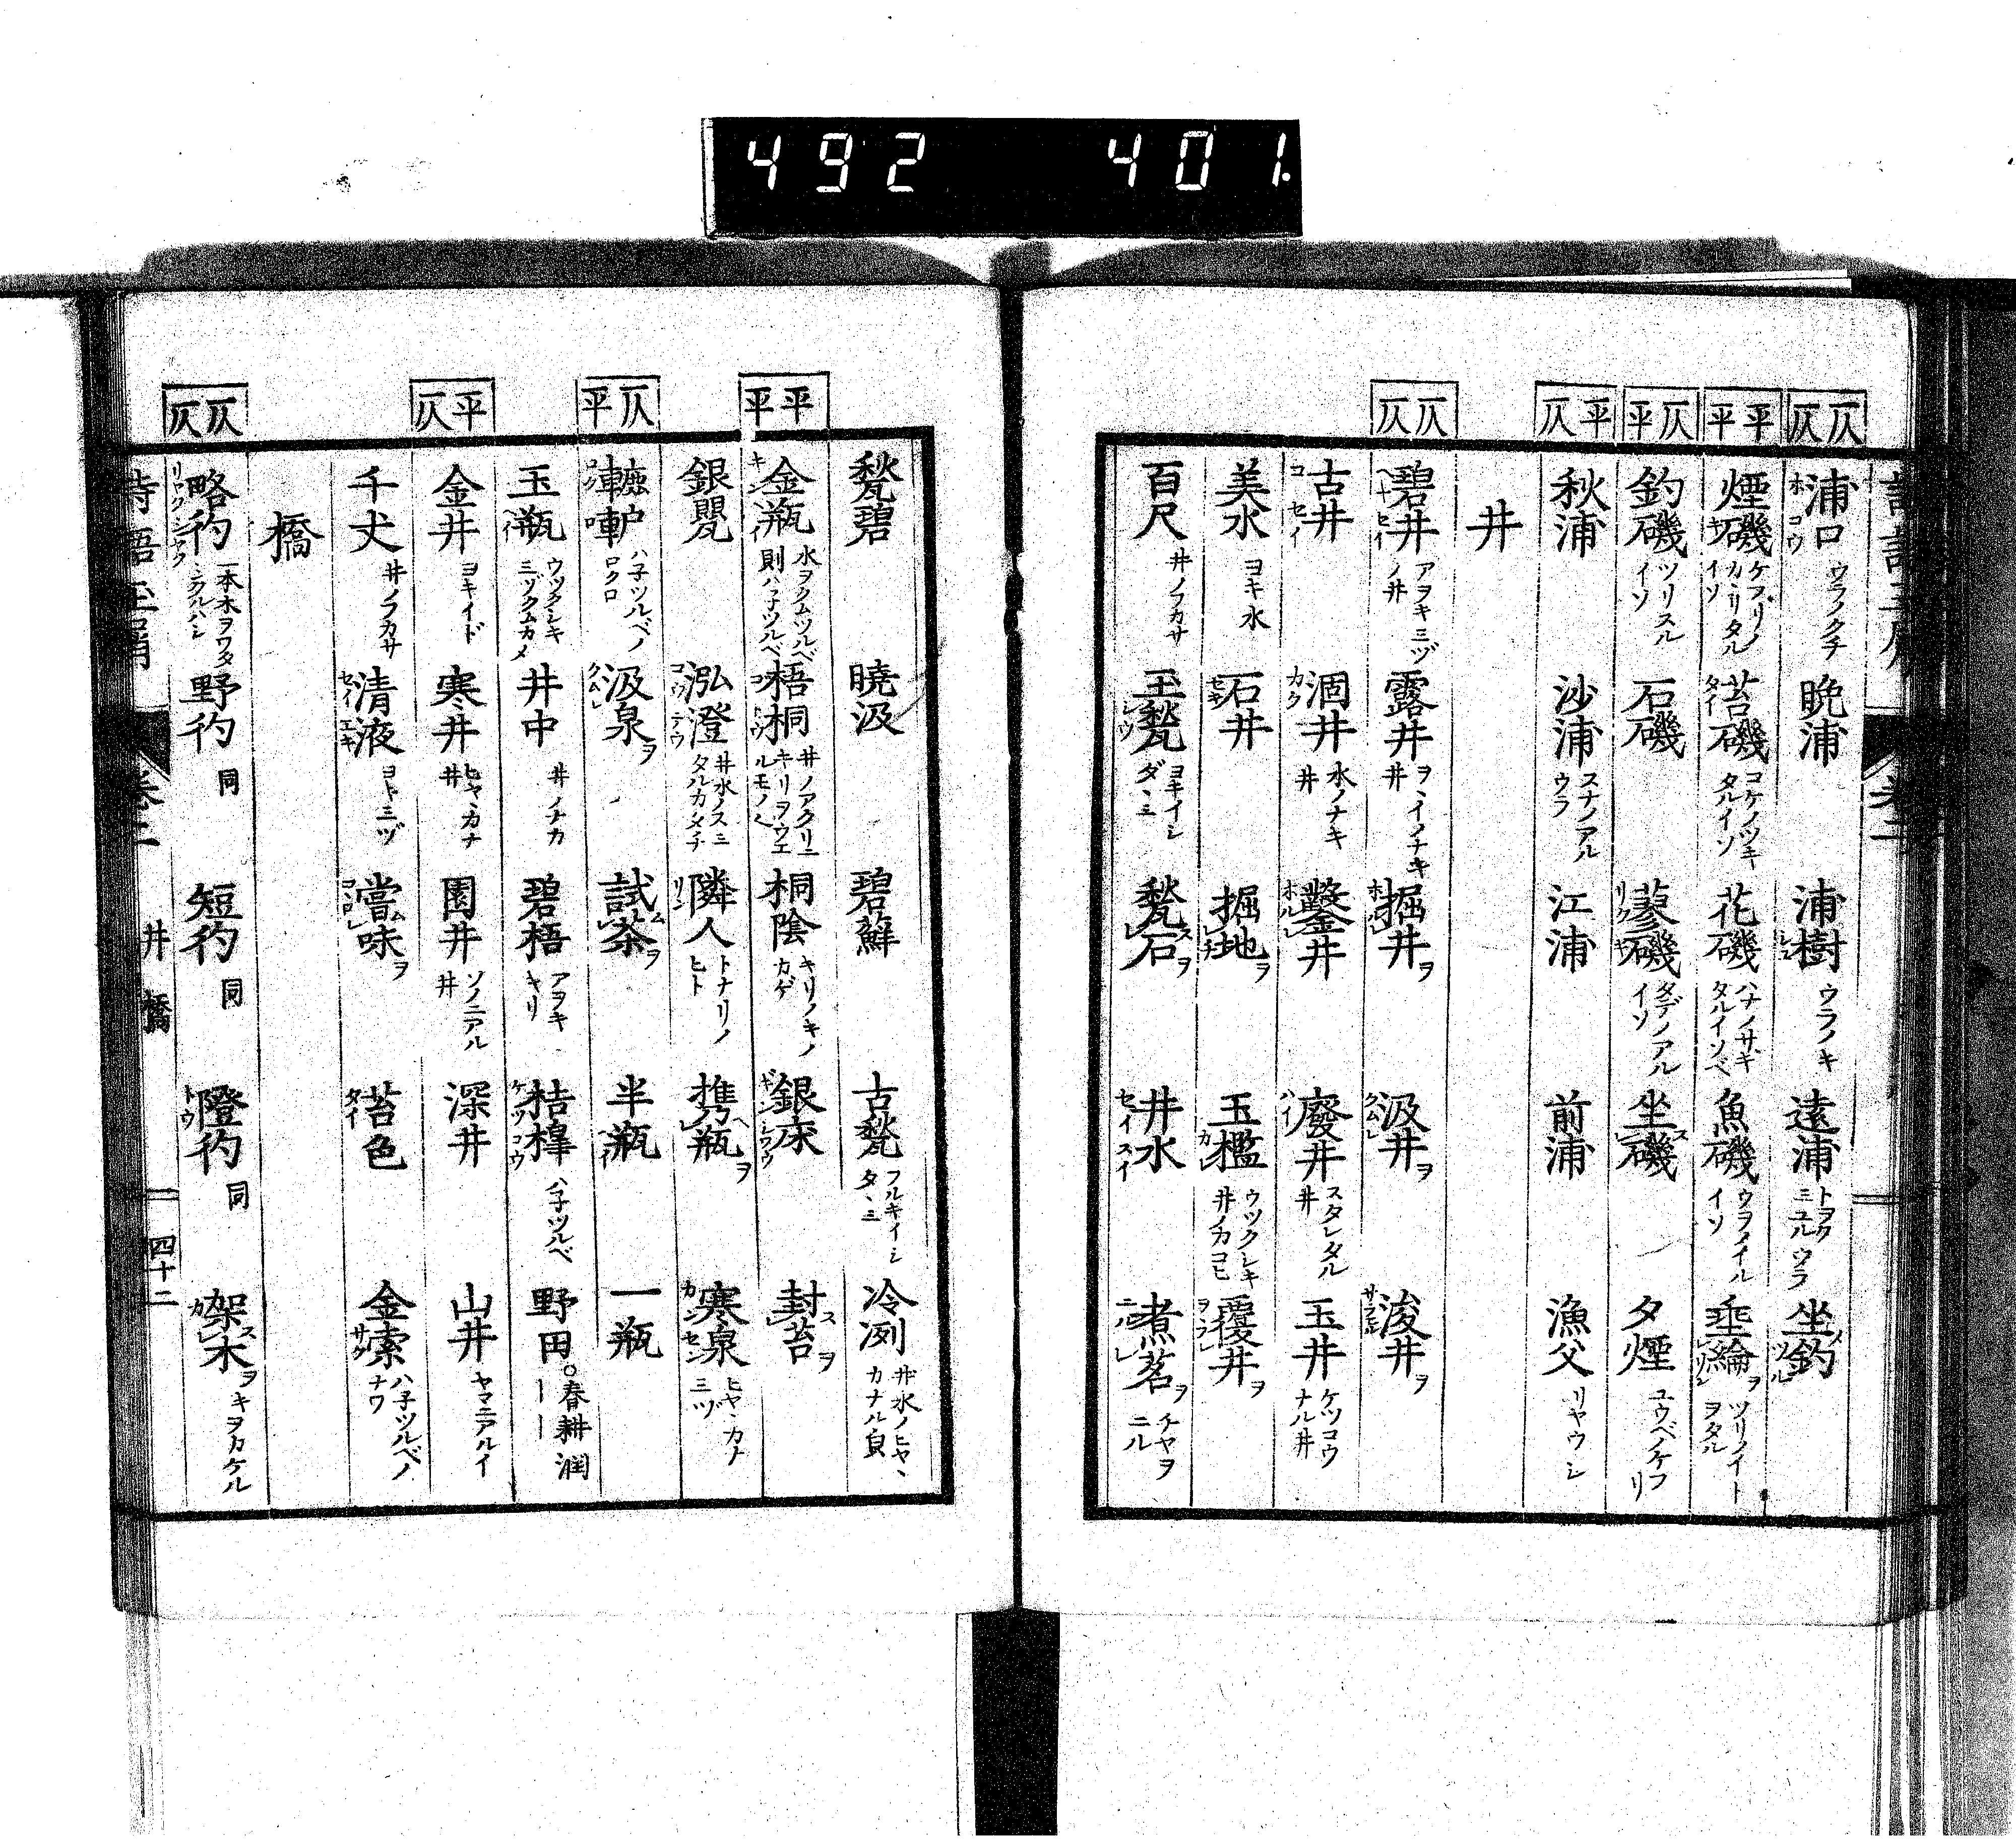 492 401.
仄仄
浦口 ウラノクチ 晩浦 浦樹 ウラノキ 遠浦 トヲクミユルウラ 坐釣
平平
煙磯 ケフリノカヽリタルイソ 苔磯 コケノツキタルイソ 花磯 ハナノサキタルイソベ 魚磯 ウヲノイルイソ 垂綸 ツリノイトヲタル
仄平
釣磯 ツリスルイソ 石磯 蓼磯 タデノアルイソ 坐磯 夕煙 ユウベノケフリ
平仄
秋浦 沙浦 スナノアルウラ 江浦 前浦 漁父 リヤウシ
井
仄仄
碧井 アヲキミヅノ井 露井 ヲヽイノナキ井 掘井 汲井 浚井
古井 涸井 水ノナキ井 鑿井 廢井 スタレタル井 玉井 ケツコウナル井
美水 ヨキ水 石井 掘地 玉檻 ウツクシキ井ノカコヒ 覆井
百尺 井ノフカサ 玉甃 ヨキイシダヽミ 甃石 井水 煮茗 チヤヲニル
甃碧 曉汲 碧蘚 古甃 フルキイシタヽミ 冷冽 井水ノヒヤヽカナル皃
平平
金瓶 水ヲクムツルベ則ハ子ツルベ 梧桐 井ノアタリニキリヲウエルモノ 桐陰 キリノキノカゲ 銀床 封苔
銀甖 泓澄 井水ノスミタルカタチ 隣人 トナリノヒト 携瓶 寒泉 ヒヤヽカナミヅ
仄平
轆轤 ハ子ツルベノロクロ 汲泉 試茶 半瓶 一瓶
玉瓶 ウツクシキミヅクムカメ 井中 井ノナカ 碧梧 アヲキキリ 桔槹 ハ子ツルベ 野田 ○春耕潤――
平仄
金井 ヨキイド 寒井 ヒヤヽカナ井 園井 ソノニアル井 深井 山井 ヤマニアルイ
千丈 井ノフカサ 清液 ヨキミヅ 嘗味 苔色 金索 ハ子ツルベノナワ
橋
仄仄
略彴 一本木ヲワタシタルハシ 野彴 同 短彴 同 隥彴 同 架木 キヲカケル
卷二 井 橋 四十二